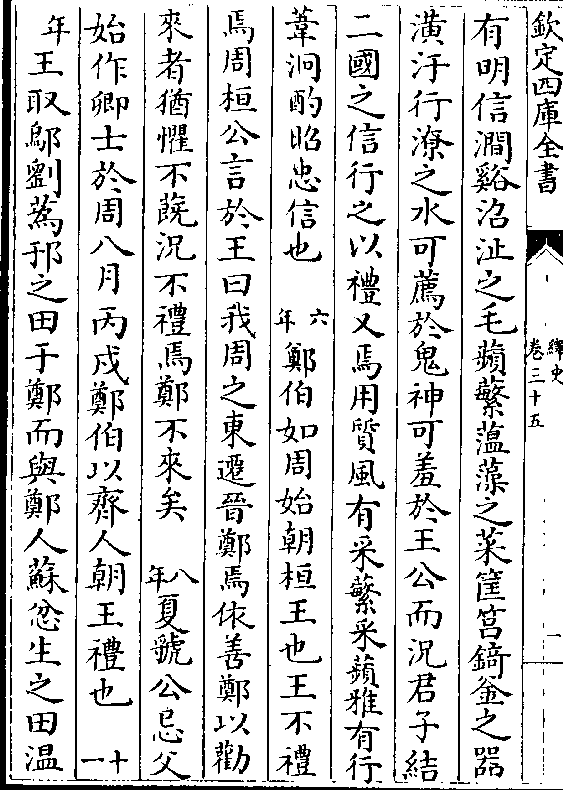 欽定四庫全書
繹史
卷三十五
有明信澗谿沼沚之毛蘋蘩薀藻之菜筐筥錡釜之器
潢汙行潦之水可薦於鬼神可羞於王公而況君子結
二國之信行之以禮又焉用質風有采蘩采蘋雅有行
葦泂酌昭忠信也 六年 鄭伯如周始朝桓王也王不禮
焉周桓公言於王曰我周之東遷晉鄭焉依善鄭以勸
來者猶懼不蔇況不禮焉鄭不來矣 八年 夏虢公忌父
始作卿士於周八月丙戌鄭伯以齊人朝王禮也 十一
年 王取鄔劉蒍邘之田于鄭而與鄭人蘇忿生之田溫